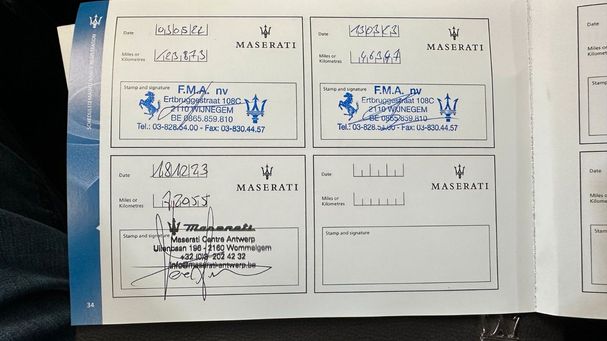 SCHEDULED MAINTENANCE REGISTRATION
Date 03 05 22
MASERATI
Miles or
Kilometres
Stamp and signature
F.M.A. nv
Ertbruggestraat 108C
2110 WIJNEGEM
BE 0865.859.810
Tel.: 03-828.54.00 - Fax: 03-830.44.57
Date 13 03 23
MASERATI
Miles or
Kilometres
Stamp and signature
F.M.A. nv
Ertbruggestraat 108C
2110 WIJNEGEM
BE 0865.859.810
Tel.: 03-828.54.00 - Fax: 03-830.44.57
Date 18 12 23
MASERATI
Miles or
Kilometres
Stamp and signature
Maserati
Maserati Centre Antwerp
Uilenbaan 196 - 2160 Wommelgem
+32 (0)3 202 42 32
info@maserati-antwerp.be
Date
MASERATI
Miles or
Kilometres
Stamp and signature
34